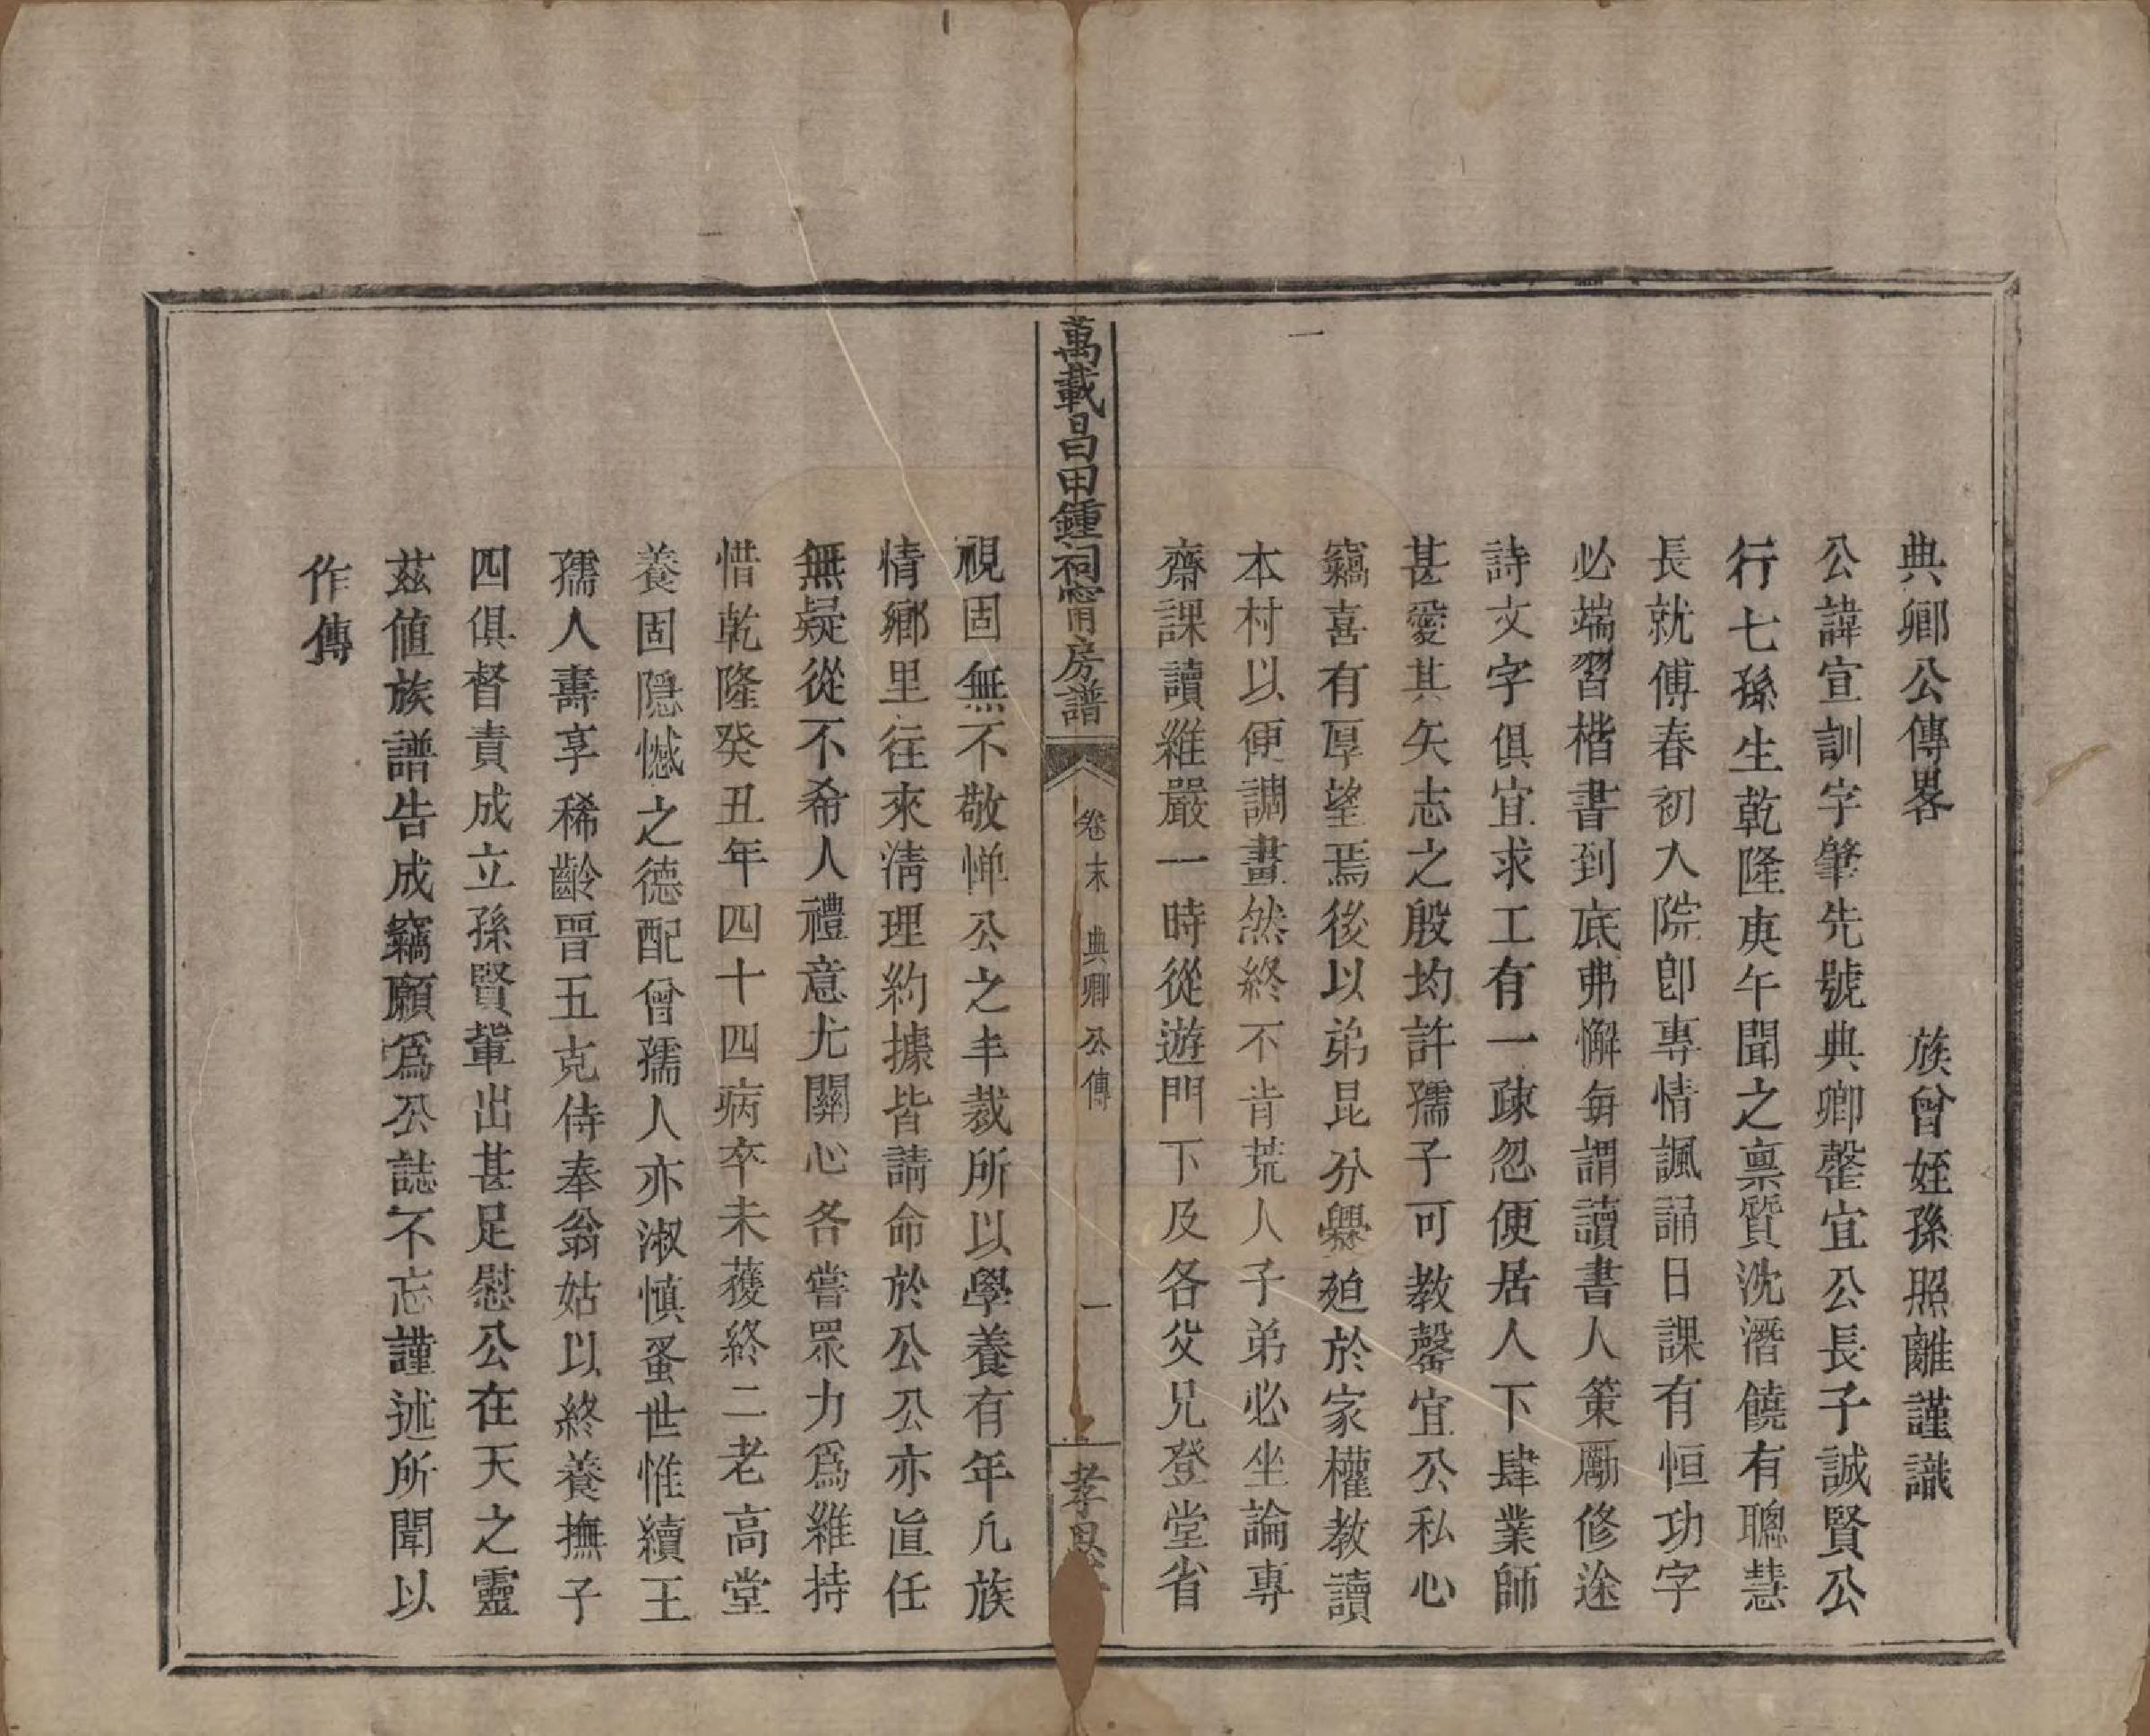 典卿公傳畧　族曾姪孫照離謹識
公諱宣訓字肇先號典卿罄宜公長子誠賢公
行七孫生乾隆庚午聞之禀質沈潛饒有聰慧
長就傅春初入院卽專情諷誦日課有恒功字
必端習楷書到底弗懈每謂讀書人策勵修途
詩文字俱宜求工有一疎忽便居人下肆業師
甚愛其矢志之殷均許孺子可教罄宜公私心
竊喜有厚望焉後以弟昆分爨廹於家權教讀
本村以便調畫然終不肯荒人子弟必坐論專
齋課讀維嚴一時從遊門下及各父兄登堂省
萬載昌田鍾祠甯房譜
卷末　典卿公傳　一
孝思
視固無不敬憚公之丰裁所以學養有年凡族
情鄉里往來淸理約據皆請命於公公亦直任
無疑從不希人禮意尤關心各嘗眾力爲維持
惜乾隆癸丑年四十四病卒未獲終二老高堂
養固隱憾之德配曾孺人亦淑慎蚤世惟續王
孺人壽享稀齡晉五克侍奉翁姑以終養撫子
四俱督責成立孫賢輩出甚足慰公在天之靈
茲値族譜告成竊願爲公誌不忘謹述所聞以
作傳